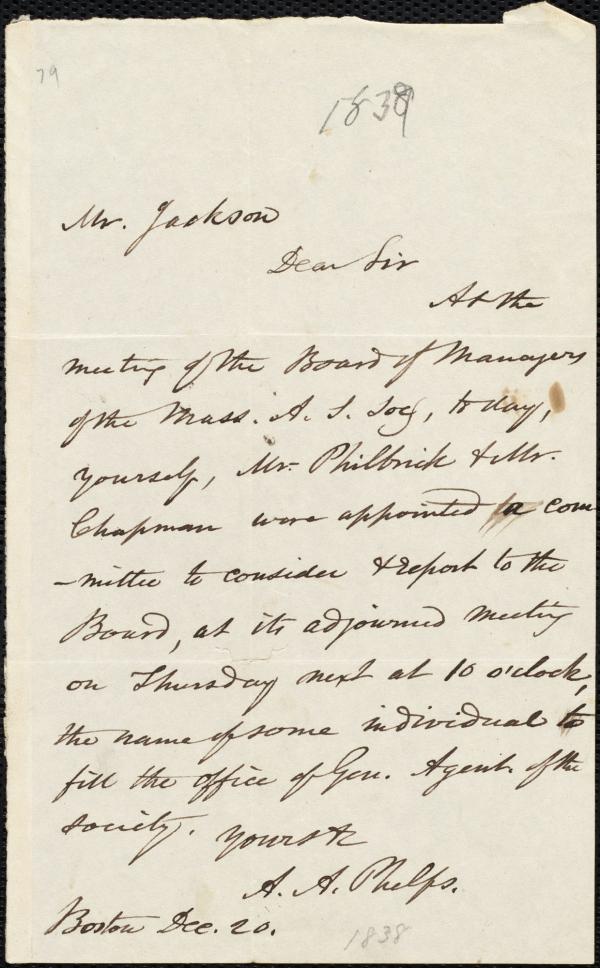 79
1839
Mr. Jackson
Dear Sir
At the
meeting of the Board of Managers
of the Mass. A. S. Socy, to day,
yourself, Mr. Philbrick & Mr.
Chapman were appointed a com
-mittee to consider & report to the
Board, at its adjourned meeting
on Thursday next at 10 o'clock,
the name of some individual to
fill the office of Gen. Agent. of the
society. yours &c
A. A. Phelps.
Boston Dec. 20.
1838